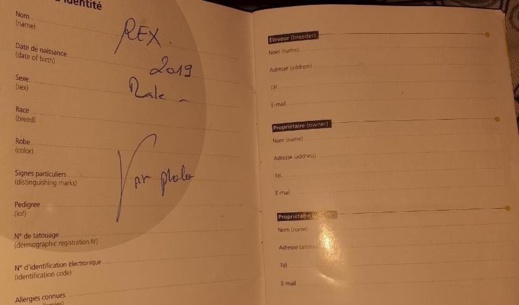 d'identité
Nom
(name)
REX.
Date de naissance
(date of birth)
2019
Sexe
(sex)
Male
Race
(breed)
Robe
(color)
Signes particuliers
(distinguishing marks)
photo
Pedigree
(lof)
N° de tatouage
(demographic registration N°)
N° d'identification électronique
(identification code)
Allergies connues
Eleveur (breeder)
Nom (name)
Adresse (address)
Tél
E-mail
Propriétaire (owner)
Nom (name)
Adresse (address)
Tél
E-mail
Propriétaire
Nom (name)
Adresse
Tél
E-mail